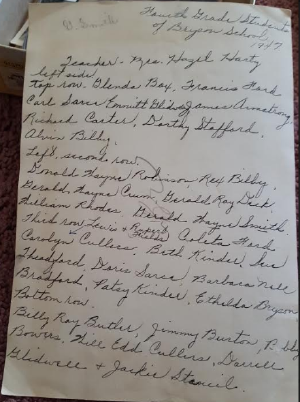 Fourth Grade Students
of Bryson School,
1947
D. Smith
Teacher - Mrs. Hazel Harty
left side.
top row. Glenda Box, Francis Ford
Carl Sares Emmitt Glidwell James Armstrong
Richard Carter, Dorthy Stafford,
Alvin Billy,
Left, second row.
Donald Wayne Robinson, Rex Billy,
Gerald Wayne Crum, Gerald Ray
Rhodes, Gerald Wayne Smith.
Third row Lewis & Coleta Ford
Carolyn Cullers, Beth Kinder,
Thedford, Doris Sares, Barbara Nell
Bradford, Patsy Kinder, Ethelda Bryson
Bottom row.
Billy Ray Butler, Jimmy Burton,
Bowers, Edd Cullers, Darrell
Glidwell & Jackie Stancil.